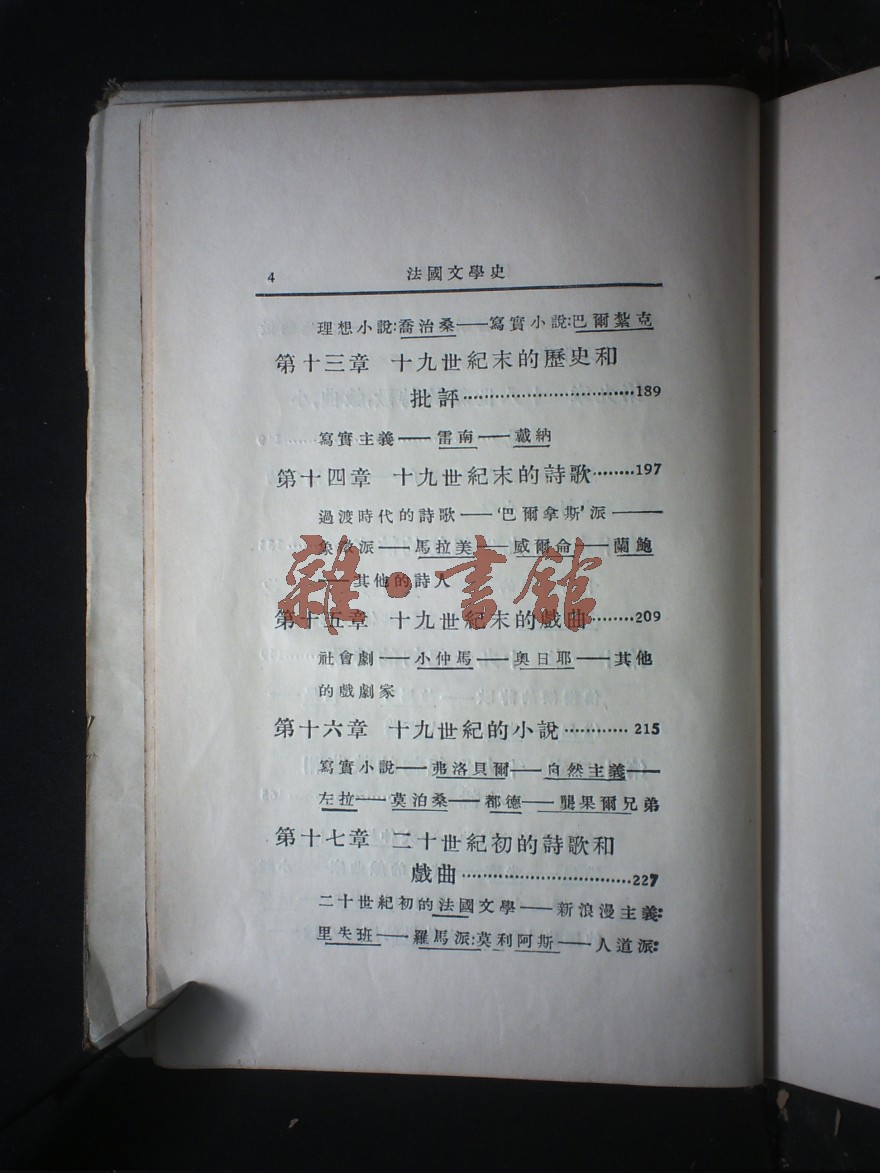 4 法國文學史
理想小說:喬治桑——寫實小說:巴爾紮克
第十三章 十九世紀末的歷史和
批評……………………………189
寫實主義——雷南——戴納
第十四章 十九世紀末的詩歌………197
過渡時代的詩歌——‘巴爾拿斯’派——
象徵派——馬拉美——威爾侖——蘭鮑
——其他的詩人
第十五章 十九世紀末的戲曲………209
社會劇——小仲馬——奧日耶——其他
的戲劇家
第十六章 十九世紀的小說…………215
寫實小說——弗洛貝爾——自然主義——
左拉——莫泊桑——都德——龔果爾兄弟
第十七章 二十世紀初的詩歌和
戲曲……………………………227
二十世紀初的法國文學——新浪漫主義:
里失班——羅馬派:莫利阿斯——人道派:
雜·書館